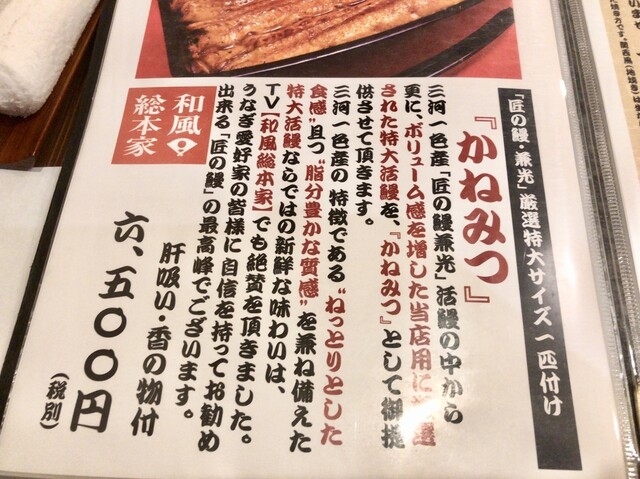 「匠の鰻・兼光」厳選特大サイズ一匹付け
『かねみつ』
三河一色産「匠の鰻兼光」活鰻の中から
更に、ボリューム感を増した当店用に厳選
された特大活鰻を、『かねみつ』として御提
供させて頂きます。
三河一色産の特徴である“ねっとりとした
食感”且つ“脂分豊かな質感”を兼ね備えた
特大活鰻ならではの新鮮な味わいは、
TV【和風総本家】でも絶賛を頂きました。
うなぎ愛好家の皆様に自信を持ってお勧め
出来る「匠の鰻」の最高峰でございます。
肝吸い・香の物付
六、五〇〇円
(税別)
和風
総本家